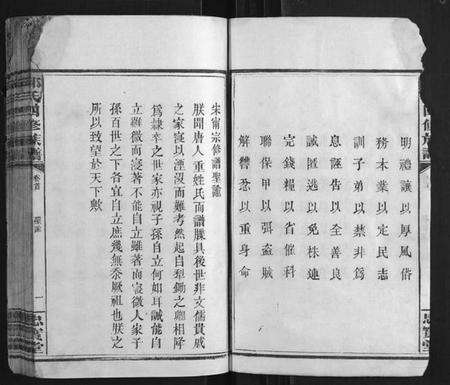 明禮讓以厚風俗
務本業以定民志
訓子弟以禁非為
息誣告以全善良
誡匿逃以免株連
完錢糧以省催科
聯保甲以弭盜賊
解讐忿以重身命
宋甯宗修譜聖諭
朕聞唐人重姓氏而譜牒具後世非文儒貴戚
之家寖以湮沒而難考然起自犁鋤之際降
為隸亖之世家亦視子孫自立何如耳誠能自
立雖微而寖著不能自立雖著而寖微人家子
孫百世之下各宜自立庶幾無忝厥祖也朕之
所以致望於天下歟
氏四修族譜
卷首
一
思
堂